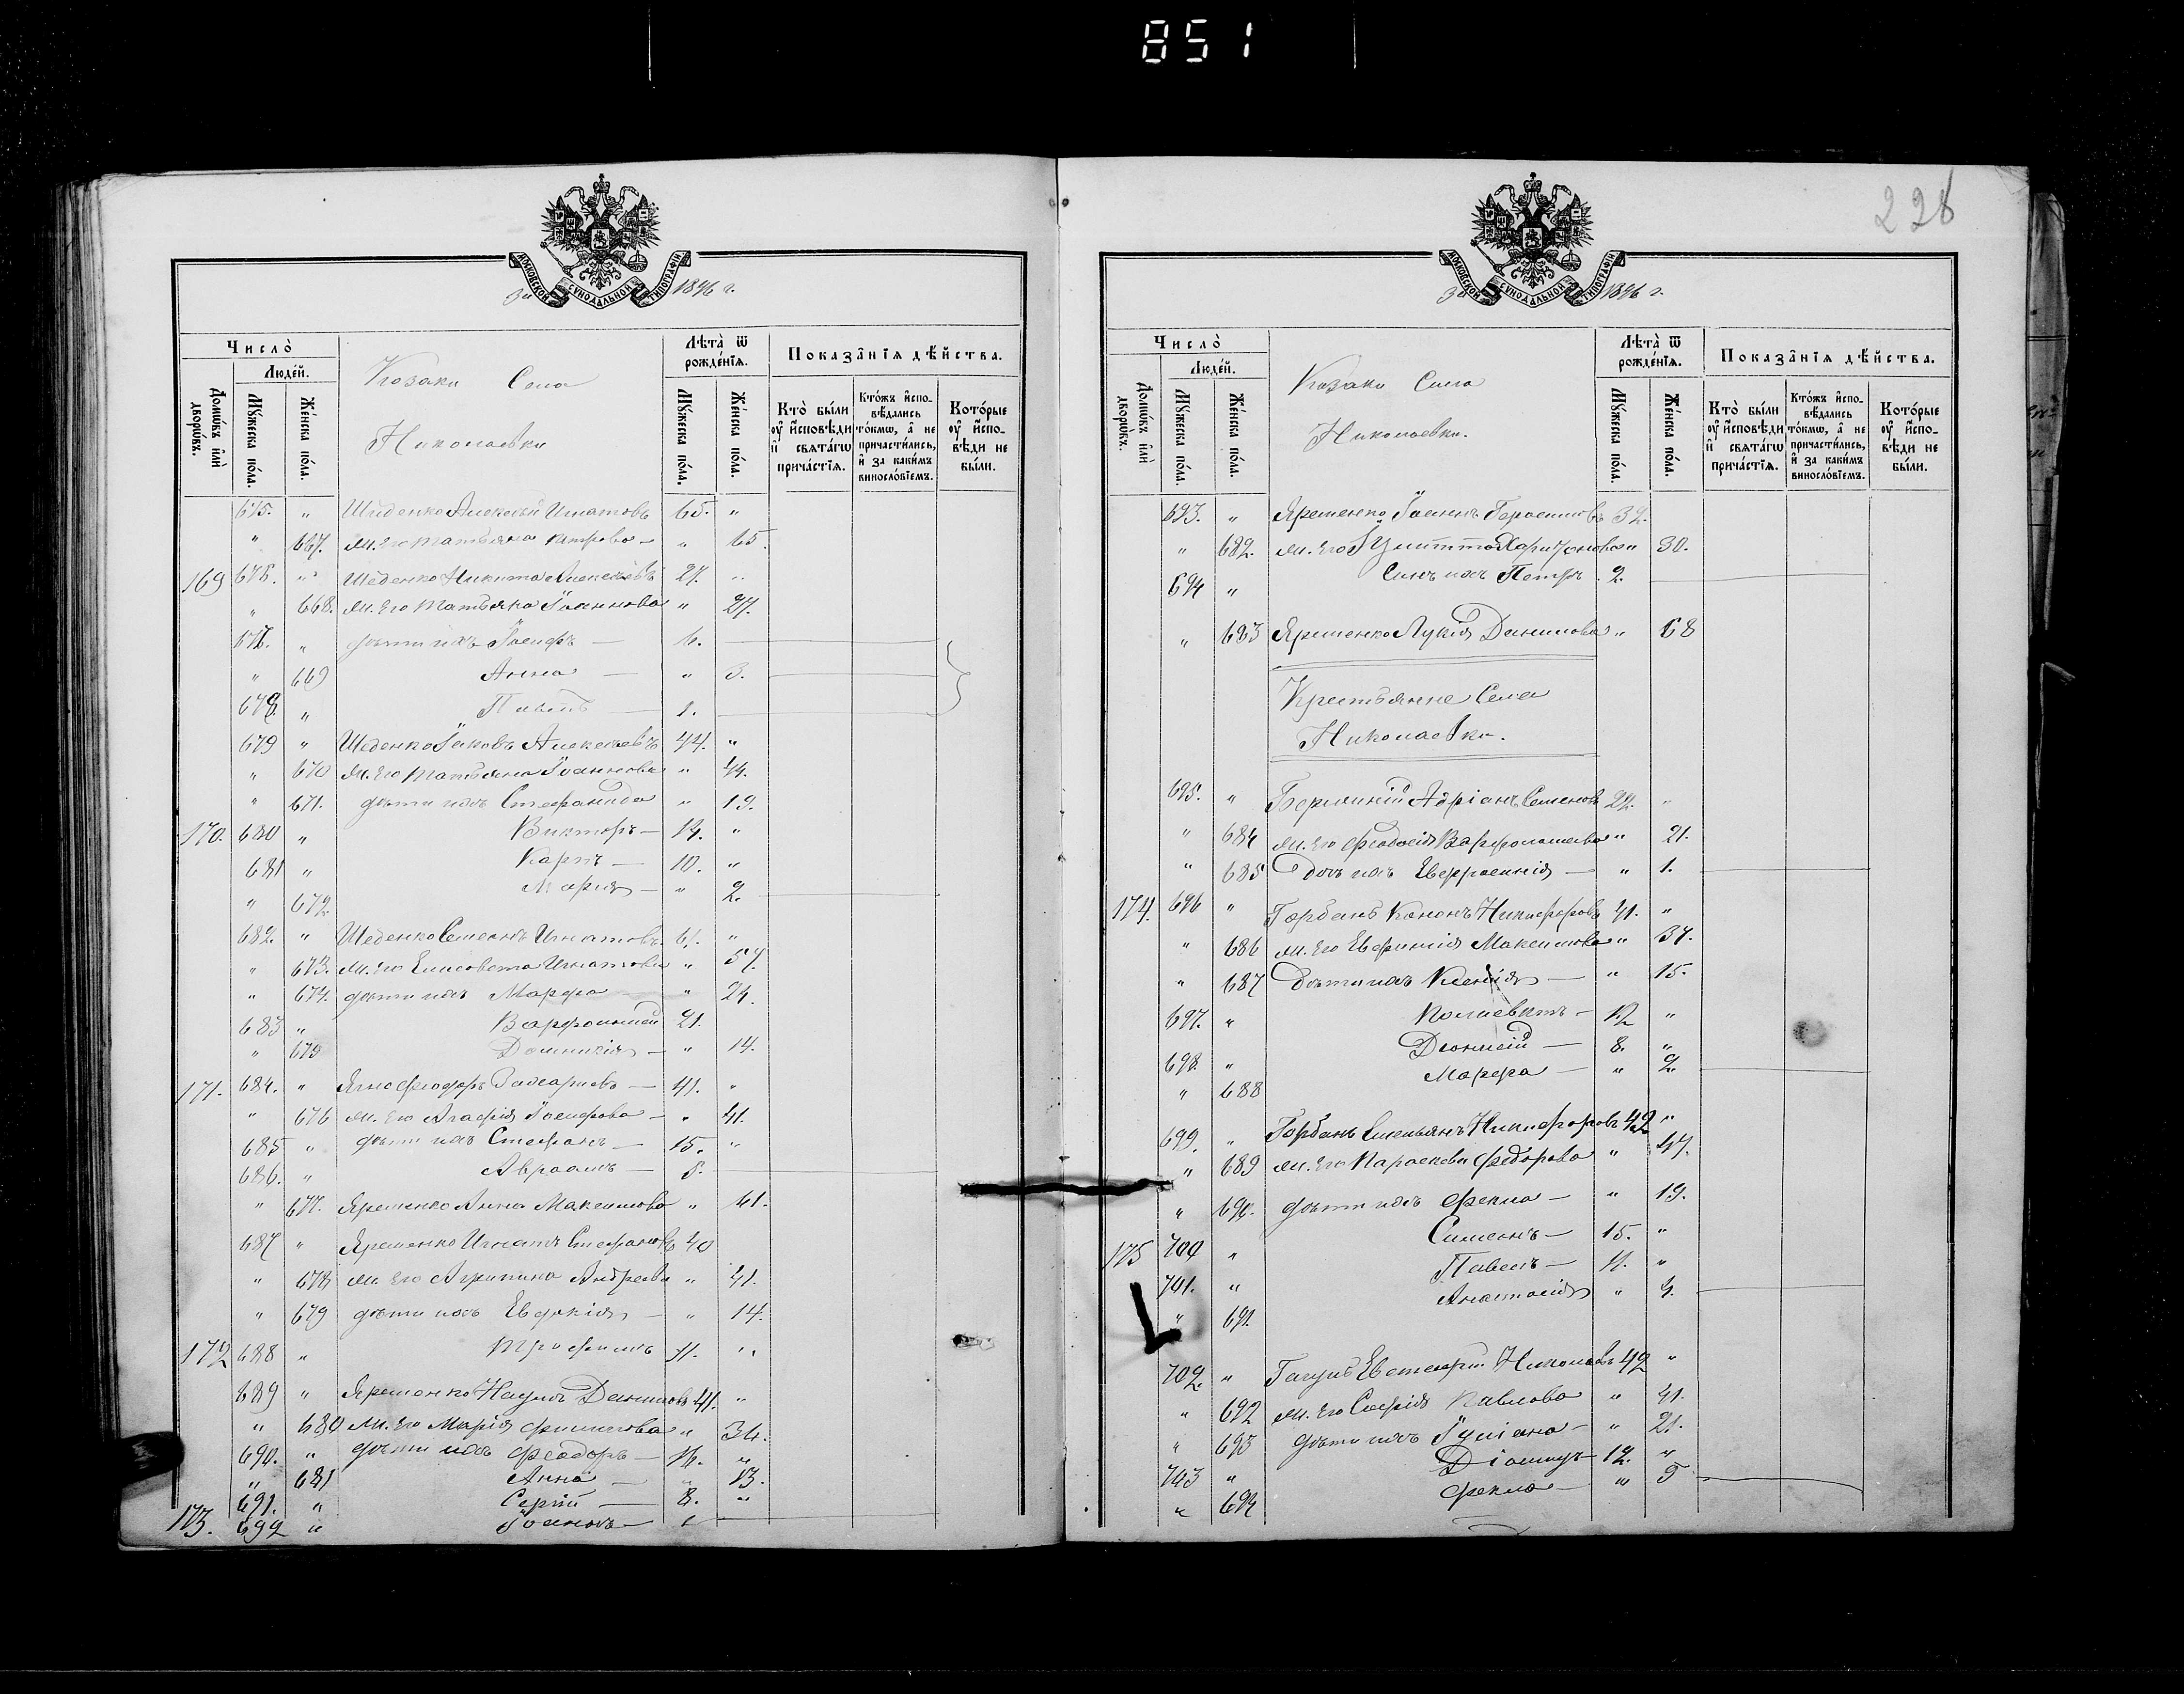 851
МОСКОВСКОЙ СѴНОДАЛЬНОЙ ТИПОГРАФІИ
За 1896 г.
Число̀
Людей.
Домѡвъ и҆лѝ дворѡвъ.
Мꙋжеска по́ла.
Же́нска по́ла.
Козаки Села
Николаевки
Лѣта̀ ѿ рожде́нїѧ.
Мꙋжеска по́ла.
Же́нска по́ла.
Показа̂нїѧ дѣ́йства.
Кто̀ бы́ли оу҆ и҆сповѣ́ди и҆ свѧта́гѡ прича́стїѧ.
Кто́жъ и҆спо-вѣ́дались то́кмѡ, а҆ не причасти́лись, и҆ за каки́мъ винослові́емъ.
Кото́рые оу҆ и҆спо-вѣ́ди не бы́ли.
675. " Шиденко Алексѣй Игнатовъ 65. "
" 667. ж. его Татьяна Петрова — " 65.
169 676. " Шеденко Никита Алексѣевъ 27. "
" 668. ж. его Татьяна Іоаннова " 27.
677. " дѣти ихъ Іосифъ — 6.
" 669 Анна — " 3.
678. " Павелъ — 1.
679 " Шеденко Іаковъ Алексѣевъ 44. "
" 670 ж. его Татьяна Іоаннова " 44.
" 671. дѣти ихъ Стефанида " 19.
170. 680 " Викторъ — 14. "
681 " Карпъ — 10. "
" 672. Марія — " 2.
682. " Шеденко Семенъ Игнатовъ 61. "
" 673. ж. его Елисавета Игнатова " 57.
" 674. дѣти ихъ Марфа — " 24.
683 " Варфоломей 21.
" 675 Домникія — " 14.
171. 684. " Феодоръ Захаріевъ — 41. "
" 676 ж. его Агафія Іосифова — " 41.
685 " дѣти ихъ Стефанъ — 15. "
686. " Авраамъ — 8.
" 677. Яременко Анна Максимова " 61.
687 " Яременко Игнатъ Стефановъ 40
" 678 ж. его Агрипина Андреева " 41.
" 679 дѣти ихъ Евдокія — " 14.
172 688 " Трофимъ 11. "
689 " Яременко Наумъ Даниловъ 41. "
" 680 ж. его Марія Филипова " 34.
690. " дѣти ихъ Феодоръ — 16. "
" 681 Анна — " 13.
691. " Сергій — 8. "
173. 692 " Іоаннъ — 1
228
МОСКОВСКОЙ СѴНОДАЛЬНОЙ ТИПОГРАФІИ
За 1896 г.
Число̀
Людей.
Домѡвъ и҆лѝ дворѡвъ.
Мꙋжеска по́ла.
Же́нска по́ла.
Козаки Села
Николаевки.
Лѣта̀ ѿ рожде́нїѧ.
Мꙋжеска по́ла.
Же́нска по́ла.
Показа̂нїѧ дѣ́йства.
Кто̀ бы́ли оу҆ и҆сповѣ́ди и҆ свѧта́гѡ прича́стїѧ.
Кто́жъ и҆спо-вѣ́дались то́кмѡ, а҆ не причасти́лись, и҆ за каки́мъ винослові́емъ.
Кото́рые оу҆ и҆спо-вѣ́ди не бы́ли.
693. " Яременко Іоаннъ Герасимовъ 32.
" 682. ж. его Іулитта Харитонова " 30.
694 " Сынъ ихъ Петръ 2.
" 683 Яременко Лукія Данилова " 68
Крестьяне Села
Николаевки.
695. " Адріанъ Семеновъ 22. "
" 684 ж. его Феодосія Варфоломеева " 21.
" 685 Дочь ихъ Евфросинія — " 1.
174. 696 " Горбань Кононъ Никифоровъ 41. "
" 686 ж. его Евфимія Максимова " 37.
" 687 Дѣти ихъ Ксенія — " 15.
697. " Поліевктъ — 12 "
698. " Діонисій — 8. "
" 688 Марфа — " 2.
699. " Горбань Емельянъ Никифоровъ 42 "
" 689 ж. его Параскева Федорова " 47.
" 690. дѣти ихъ Фекла — " 19.
175 700 " Симеонъ — 15. "
701. " Павелъ — 11. "
" 691. Анастасія " 4.
702. " Гагуль Евстафій Николаевъ 42 "
" 692 ж. его Софія Павлова " 41.
" 693 дѣти ихъ Іуліана — " 21.
703 " Діомидъ — 12. "
" 694 Фекла — " 5